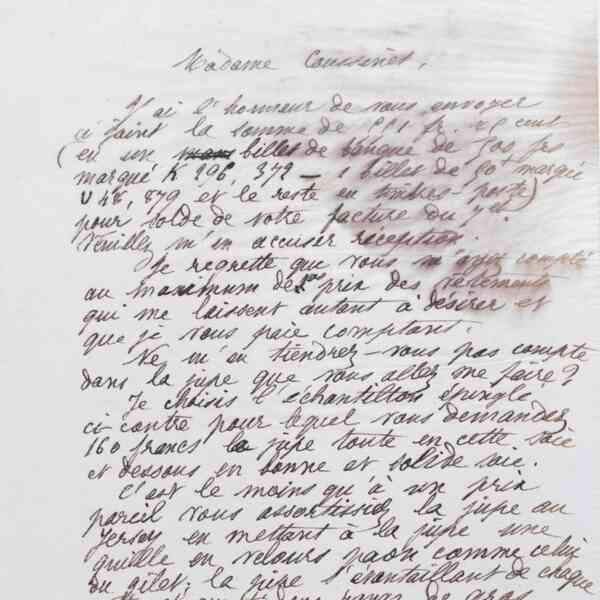 Madame Coussinet,
J'ai l'honneur de vous envoyer
ci joint la somme de 551 fr. 25 cent
(en un billet de banque de 500 frs
marqué K 296, 372 — 1 billet de 50f marqué
V 48, 879 et le reste en timbres-poste)
pour solde de votre facture du
Veuillez m'en accuser réception.
Je regrette que vous m'ayez compté
au maximum des prix des vêtements
qui me laissent autant à désirer et
que je vous paie comptant.
Ne m'en tiendrez-vous pas compte
dans la jupe que vous allez me faire?
Je choisis l'échantillon épinglé
ci contre pour lequel vous demandez
160 francs la jupe toute en cette soie
et dessous en bonne et solide soie.
C'est le moins qu'à un prix
pareil vous assortissiez la jupe au
Jersey en mettant à la jupe une
quille en velours paon comme celui
du gilet; la jupe s'éventaillant de chaque
de gros